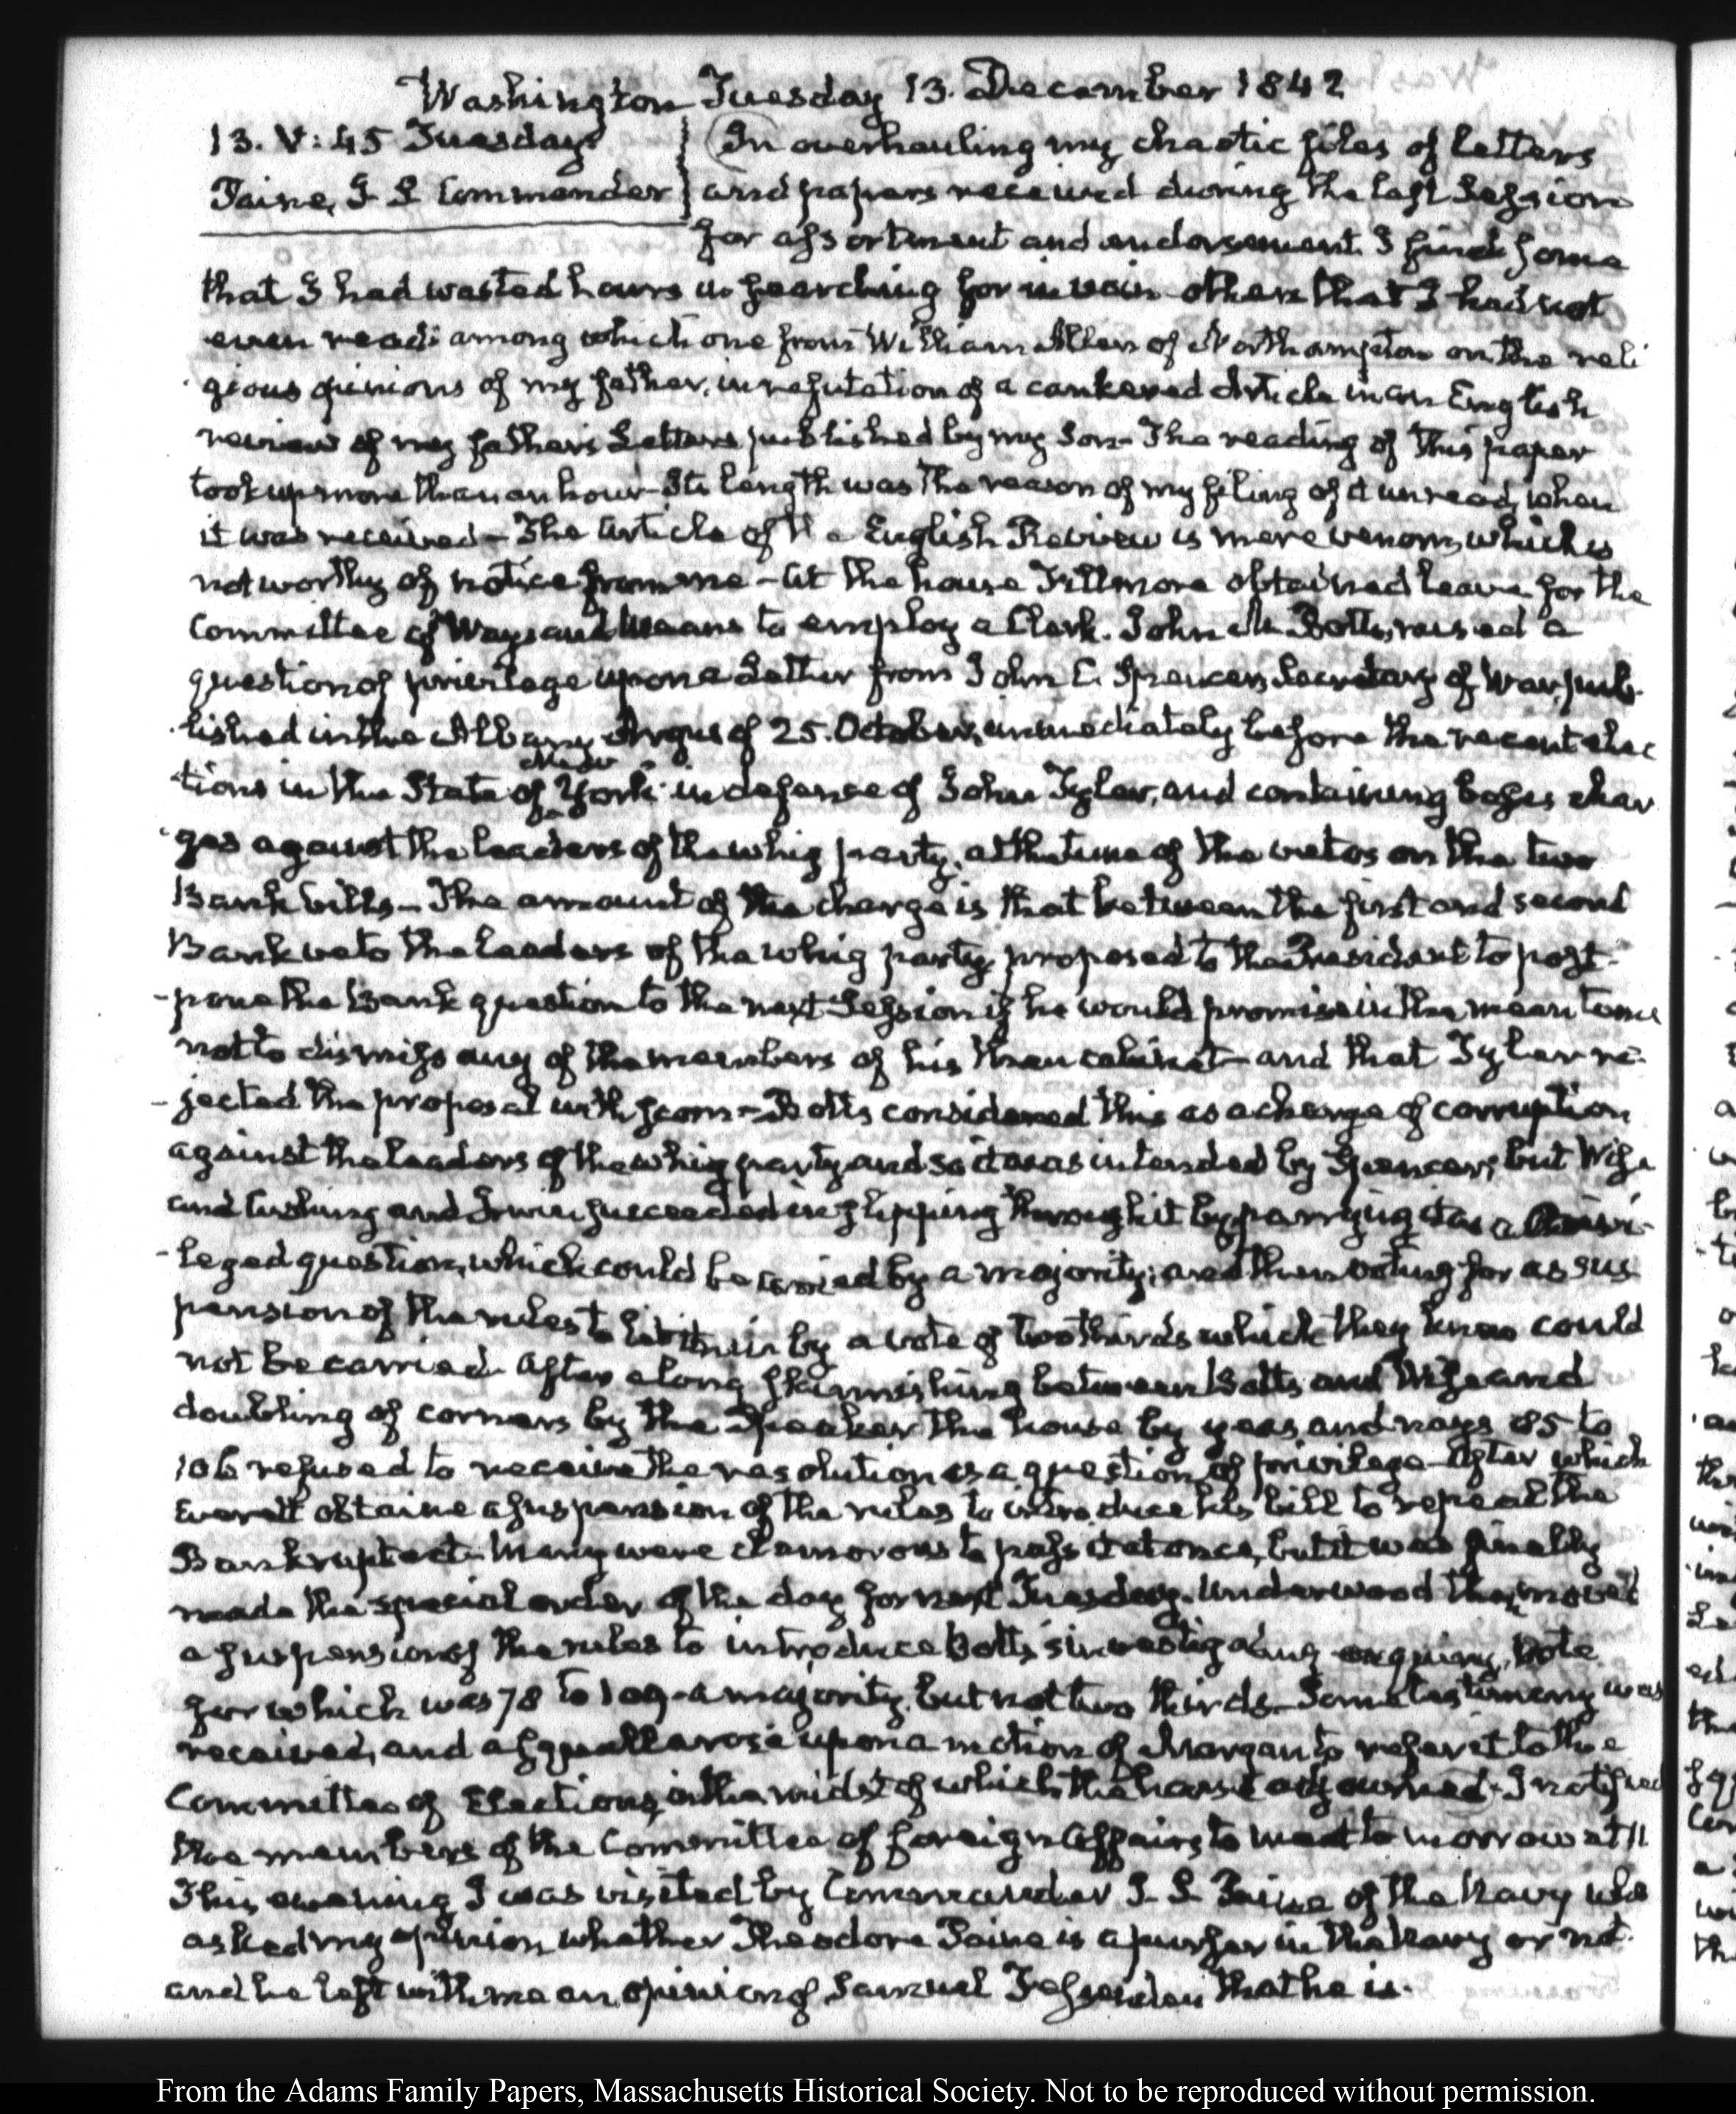 Washington Tuesday 13. December 1842
13. V:45 Tuesday
Paine, J S Commander
In overhauling my chaotic files of letters
and papers received during the last Session
for assortment and endorsement I find some
that I had wasted hours in searching for in vain others that I had not
even read: among which one from William Allen of Northampton on the reli
gious opinions of my father, in refutation of a cankered Article in an English
review of my father's Letters published by my Son. The reading of this paper
took up more than an hour. Its length was the reason of my filing of it unread, when
it was received. The Article of the English Review is mere venom, which is
not worthy of notice from me. At the house Fillmore obtained leave for the
Committee of Ways and Means to employ a Clerk. John M. Botts, raised a
question of privilege upon a Letter from John C. Spencer, Secretary of War, pub-
lished in the Albany Argus of 25. October, immediately before the recent elec
tions in the State of New York in defence of John Tyler, and containing base char
ges against the leaders of the whig party, at the time of the vetos on the two
Bank bills. The amount of the charge is that between the first and second
Bank veto the leaders of the whig party proposed to the President to post-
-pone the Bank question to the next Session if he would promise in the mean time
not to dismiss any of the members of his then cabinet and that Tyler re-
-jected the proposal with scorn. Botts considered this as a charge of corruption
against the leaders of the whig party and so it was intended by Spencer; but Wise
and Cushing and Irwin succeeded in slipping through it by parrying it as a Privi-
-leged question, which could be carried by a majority; and then voting for a sus
pension of the rules to let it in by a vote of two thirds which they knew could
not be carried. After a long skirmishing between Botts and Wise and
doubling of corners by the Speaker the house by yeas and nays 85 to
106 refused to receive the resolution as a question of privilege. After which
Everett obtaine a suspension of the rules to introduce his bill to repeal the
Bankrupt act. Many were clamorous to pass it at once, but it was finally
made the special order of the day for next Tuesday. Underwood then moved
a suspension of the rules to introduce Botts's investigating enquiry, Vote
for which was 78 to 109 a majority, but not two thirds. Some testimony was
received, and a squall arose upon a motion of Morgan to refer it to the
Committee of Elections, in the midst of which the house adjourned. I notified
the members of the Committee of foreign Affairs to meet to morrow at 11.
This evening I was visited by Commander J. S. Paine of the Navy who
asked my opinion whether Theodore Paine is a purser in the Navy or not.
and he left with me an opinion of Samuel Fessenden that he is.
From the Adams Family Papers, Massachusetts Historical Society. Not to be reproduced without permission.